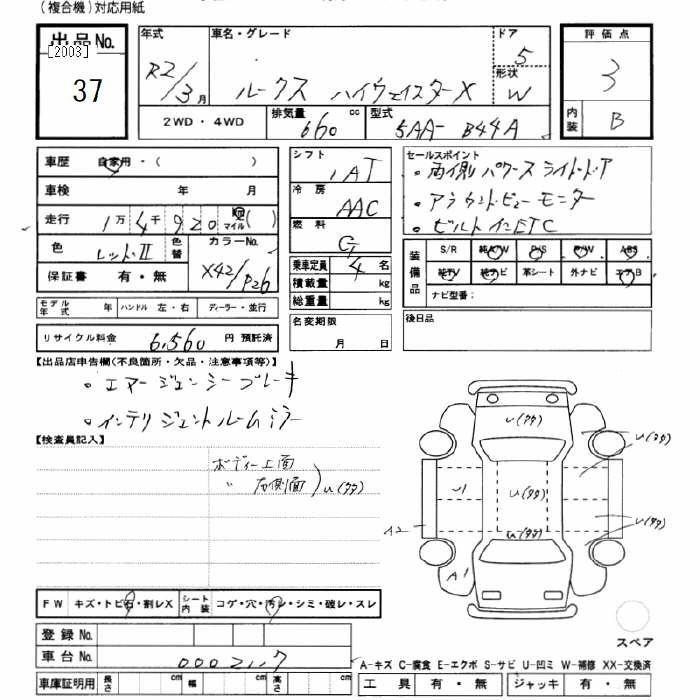 (複合機)対応用紙
出品No.
[2003]
37
年式
R2/3月
車名・グレード
ルークス ハイウェイスターX
ドア
5
形状
W
2WD・4WD
排気量 660 cc
型式 5AA-B44A
評価点
3
内装 B
車歴 自家用・( )
車検 年 月
走行 1万4千920 Km マイル ( )
色 レッドII 色替
カラーNo. X42/P26
保証書 有・無
シフト
IAT
冷房
AAC
燃料
G
乗車定員 4名
積載量 kg
総重量 kg
セールスポイント
・両側パワースライドドア
・アラウンドビューモニター
・ビルトインETC
装備品
S/R 純A/W P/S P/W ABS
純TV 純ナビ 革シート 外ナビ エアB
ナビ型番:
モデル年式 年 ハンドル 左・右 ディーラー・並行
リサイクル料金 6,560円 預託済
名変期限
月 日
後日品
【出品店申告欄(不良箇所・欠品・注意事項等)】
・エマージェンシーブレーキ
・インテリジェントルームミラー
【検査員記入】
ボディー上面
〃 右側面
U(タタ)
U(タタ)
U(タタ)
U1
U(タタ)
U(タタ)
A2
U(タタ)
A1
FW キズ・トビ石・割レX
シート内装 コゲ・穴・汚レ・シミ・破レ・スレ
スペア
登録No.
車台No.
A-キズ C-腐食 E-エクボ S-サビ U-凹ミ W-補修 XX-交換済
車庫証明用 長さ cm 幅 cm 高さ cm
工具 有・無 ジャッキ 有・無